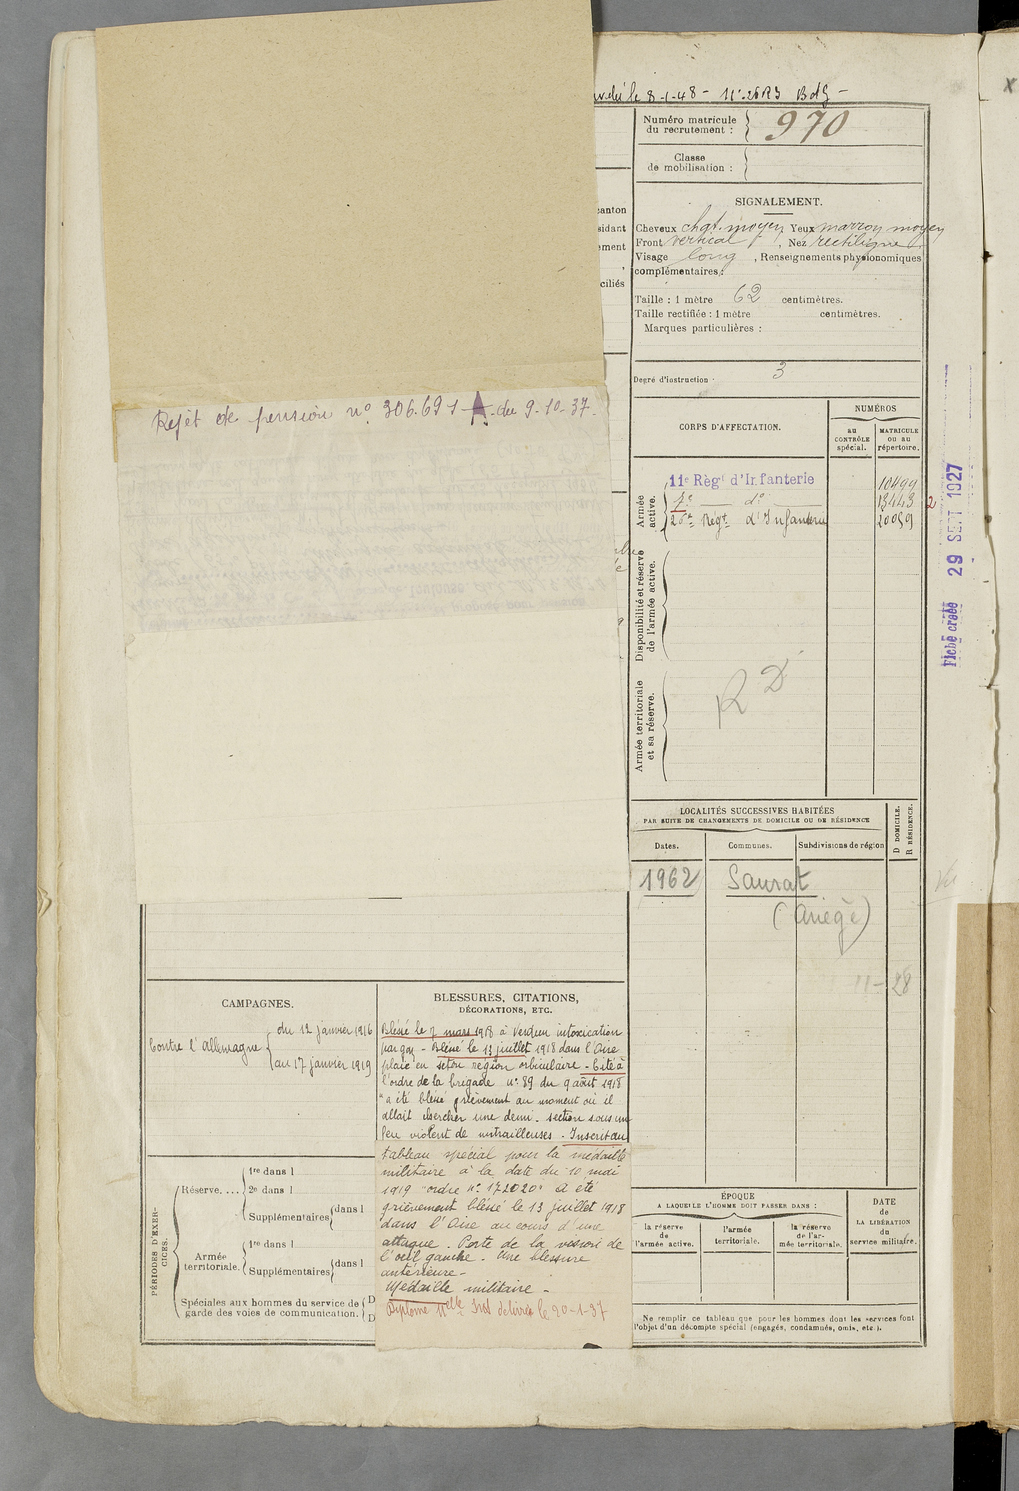 le 8-1-48 - N° 26R3 BdG -
Numéro matricule
du recrutement : 970
Classe
de mobilisation :
SIGNALEMENT.
canton
sidant
ement
ciliés
Cheveux chat. moyen, Yeux marron moyen
Front vertical, Nez rectiligne.
Visage long, Renseignements physionomiques
complémentaires :
Taille : 1 mètre 62 centimètres.
Taille rectifiée : 1 mètre centimètres.
Marques particulières :
Degré d'instruction . 3
Rejet de pension n° 306.691 A. du 9-10-37.
CORPS D'AFFECTATION.
NUMÉROS
au
CONTRÔLE
spécial.
MATRICULE
ou au
répertoire.
Armée
active.
11e Règt d'Infanterie 10499
7e d° 13443 2
20me Règt d'Infanterie 20059
Disponibilité et réserve
de l'armée active.
Armée territoriale
et sa réserve.
R D
Fiche créée 29 SEPT 1927
LOCALITÉS SUCCESSIVES HABITÉES
PAR SUITE DE CHANGEMENTS DE DOMICILE OU DE RÉSIDENCE
D DOMICILE.
R RÉSIDENCE.
Dates.
Communes.
Subdivisions de région
1962 Saurat
(Ariège)
11-28
CAMPAGNES.
Contre l'Allemagne
du 12 janvier 1916
au 17 janvier 1919
BLESSURES, CITATIONS,
DÉCORATIONS, ETC.
Blessé le 7 mars 1918 à Verdun intoxication
par gaz - Blessé le 13 juillet 1918 dans l'Oise
plaie en seton région orbiculaire - Cité à
l'ordre de la brigade n° 89 du 9 août 1918
"a été blessé grièvement au moment où il
allait chercher une demi-section sous un
feu violent de mitrailleuses - Inscrit au
tableau spécial pour la médaille
militaire à la date du 10 mai
1919 "ordre n° 172020" A été
grièvement blessé le 13 juillet 1918
dans l'Oise au cours d'une
attaque. Perte de la vision de
l'œil gauche. Une blessure
antérieure -
Médaille militaire -
Diplôme délivré le 20-1-37
PÉRIODES D'EXER-
CICES.
Réserve. ....
1re dans l
2e dans l
Supplémentaires dans l
Armée
territoriale.
1re dans l
Supplémentaires dans l
Spéciales aux hommes du service de
garde des voies de communication.
D
D
ÉPOQUE
A LAQUELLE L'HOMME DOIT PASSER DANS :
la réserve
de
l'armée active.
l'armée
territoriale.
la réserve
de l'ar-
mée territoriale.
DATE
de
LA LIBÉRATION
du
service militaire.
Ne remplir ce tableau que pour les hommes dont les services font
l'objet d'un décompte spécial (engagés, condamnés, omis, etc.).